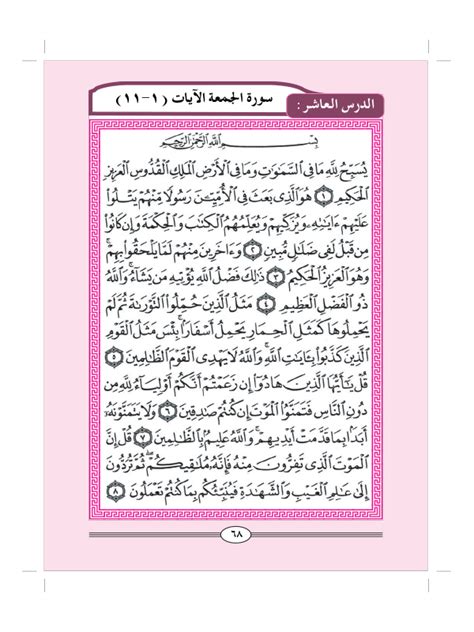 الدرس العاشر :
سورة الجمعة الآيات ( ١-١١ )
بِسْمِ اللَّهِ الرَّحْمَٰنِ الرَّحِيمِ
يُسَبِّحُ لِلَّهِ مَا فِي السَّمَٰوَٰتِ وَمَا فِي الْأَرْضِ الْمَلِكِ الْقُدُّوسِ الْعَزِيزِ
الْحَكِيمِ ١ هُوَ الَّذِي بَعَثَ فِي الْأُمِّيِّينَ رَسُولًا مِّنْهُمْ يَتْلُوا
عَلَيْهِمْ ءَايَٰتِهِ وَيُزَكِّيهِمْ وَيُعَلِّمُهُمُ الْكِتَٰبَ وَالْحِكْمَةَ وَإِن كَانُوا
مِن قَبْلُ لَفِي ضَلَٰلٍ مُّبِينٍ ٢ وَءَاخَرِينَ مِنْهُمْ لَمَّا يَلْحَقُوا بِهِمْ
وَهُوَ الْعَزِيزُ الْحَكِيمُ ٣ ذَٰلِكَ فَضْلُ اللَّهِ يُؤْتِيهِ مَن يَشَاءُ وَاللَّهُ
ذُو الْفَضْلِ الْعَظِيمِ ٤ مَثَلُ الَّذِينَ حُمِّلُوا التَّوْرَىٰةَ ثُمَّ لَمْ
يَحْمِلُوهَا كَمَثَلِ الْحِمَارِ يَحْمِلُ أَسْفَارًا بِئْسَ مَثَلُ الْقَوْمِ
الَّذِينَ كَذَّبُوا بِـَٔايَٰتِ اللَّهِ وَاللَّهُ لَا يَهْدِي الْقَوْمَ الظَّٰلِمِينَ ٥
قُلْ يَٰأَيُّهَا الَّذِينَ هَادُوا إِن زَعَمْتُمْ أَنَّكُمْ أَوْلِيَاءُ لِلَّهِ مِن
دُونِ النَّاسِ فَتَمَنَّوُا الْمَوْتَ إِن كُنتُمْ صَٰدِقِينَ ٦ وَلَا يَتَمَنَّوْنَهُ
أَبَدًا بِمَا قَدَّمَتْ أَيْدِيهِمْ وَاللَّهُ عَلِيمٌ بِالظَّٰلِمِينَ ٧ قُلْ إِنَّ
الْمَوْتَ الَّذِي تَفِرُّونَ مِنْهُ فَإِنَّهُ مُلَٰقِيكُمْ ثُمَّ تُرَدُّونَ
إِلَىٰ عَٰلِمِ الْغَيْبِ وَالشَّهَٰدَةِ فَيُنَبِّئُكُم بِمَا كُنتُمْ تَعْمَلُونَ ٨
٦٨